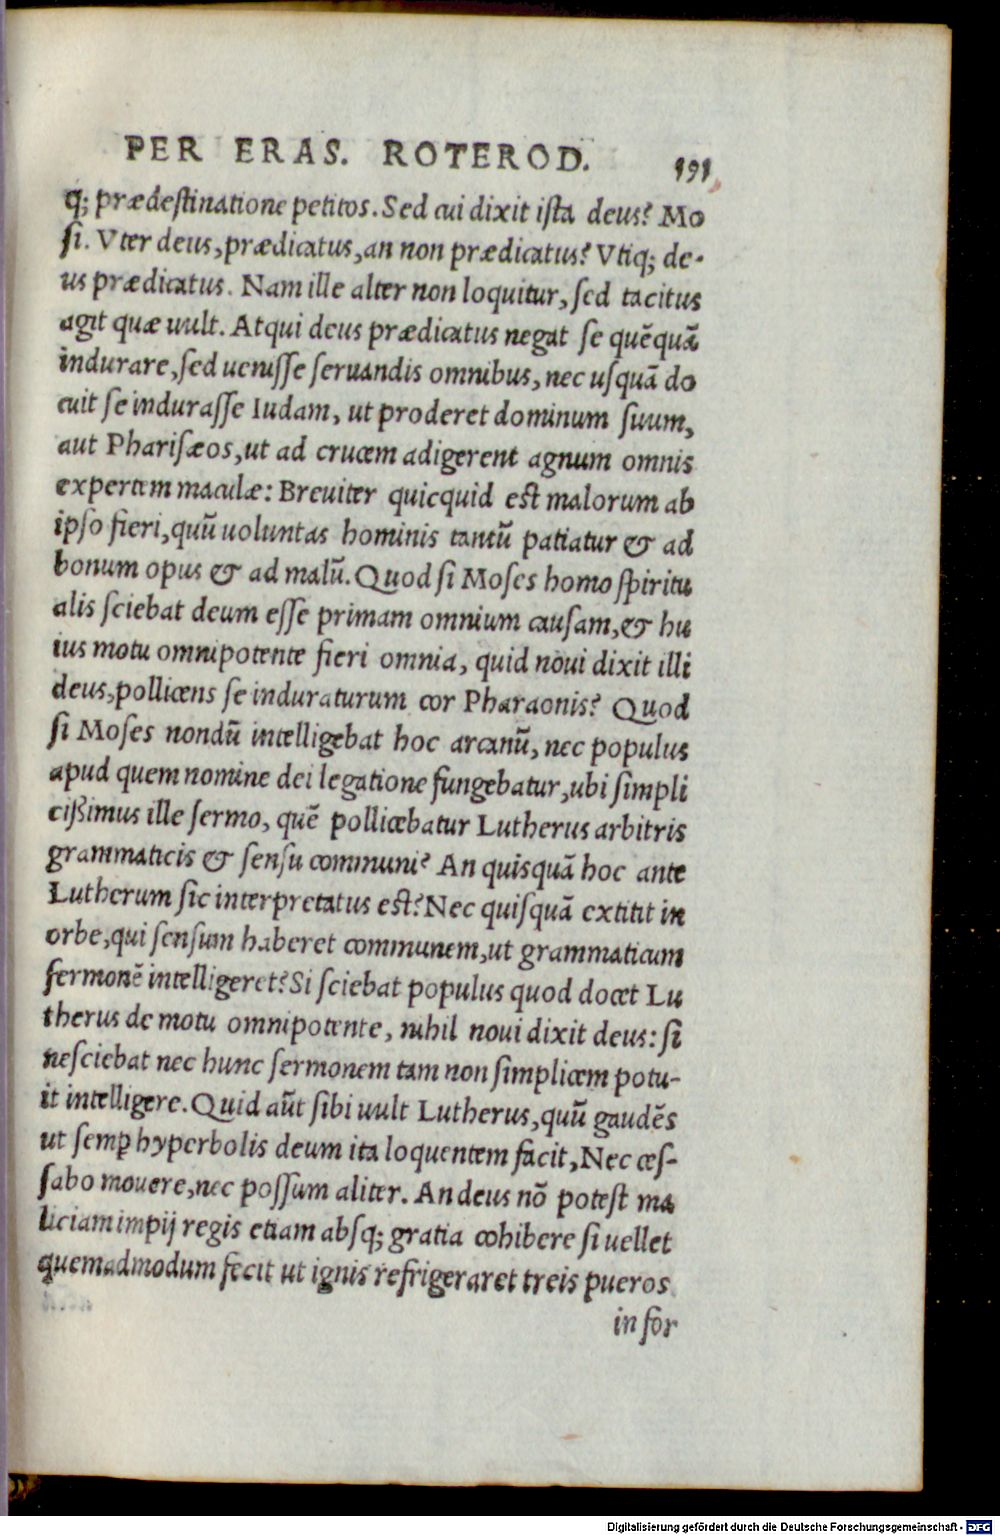 PER ERAS. ROTEROD. 191
q; prædestinatione petitos. Sed cui dixit ista deus? Mo
si. Vter deus, prædicatus, an non prædicatus? Vtiq; de-
us prædicatus. Nam ille alter non loquitur, sed tacitus
agit quæ uult. Atqui deus prædicatus negat se quẽquã
indurare, sed uenisse seruandis omnibus, nec usquã do
cuit se indurasse Iudam, ut proderet dominum suum,
aut Pharisæos, ut ad crucem adigerent agnum omnis
expertem maculæ: Breuiter quicquid est malorum ab
ipso fieri, quũ uoluntas hominis tantũ patiatur & ad
bonum opus & ad malũ. Quod si Moses homo spiritu
alis sciebat deum esse primam omnium causam, & hu
ius motu omnipotente fieri omnia, quid noui dixit illi
deus, pollicens se induraturum cor Pharaonis? Quod
si Moses nondũ intelligebat hoc arcanũ, nec populus
apud quem nomine dei legatione fungebatur, ubi simpli
cißimus ille sermo, quẽ pollicebatur Lutherus arbitris
grammaticis & sensu communi? An quisquã hoc ante
Lutherum sic interpretatus est? Nec quisquã extitit in
orbe, qui sensum haberet communem, ut grammaticum
sermonẽ intelligeret? Si sciebat populus quod docet Lu
therus de motu omnipotente, nihil noui dixit deus: si
nesciebat nec hunc sermonem tam non simplicem potu-
it intelligere. Quid aũt sibi uult Lutherus, quũ gaudẽs
ut semꝑ hyperbolis deum ita loquentem facit, Nec ces-
sabo mouere, nec possum aliter. An deus nõ potest ma
liciam impij regis etiam absq; gratia cohibere si uellet
quemadmodum fecit ut ignis refrigeraret treis pueros
in for
Digitalisierung gefördert durch die Deutsche Forschungsgemeinschaft - DFG